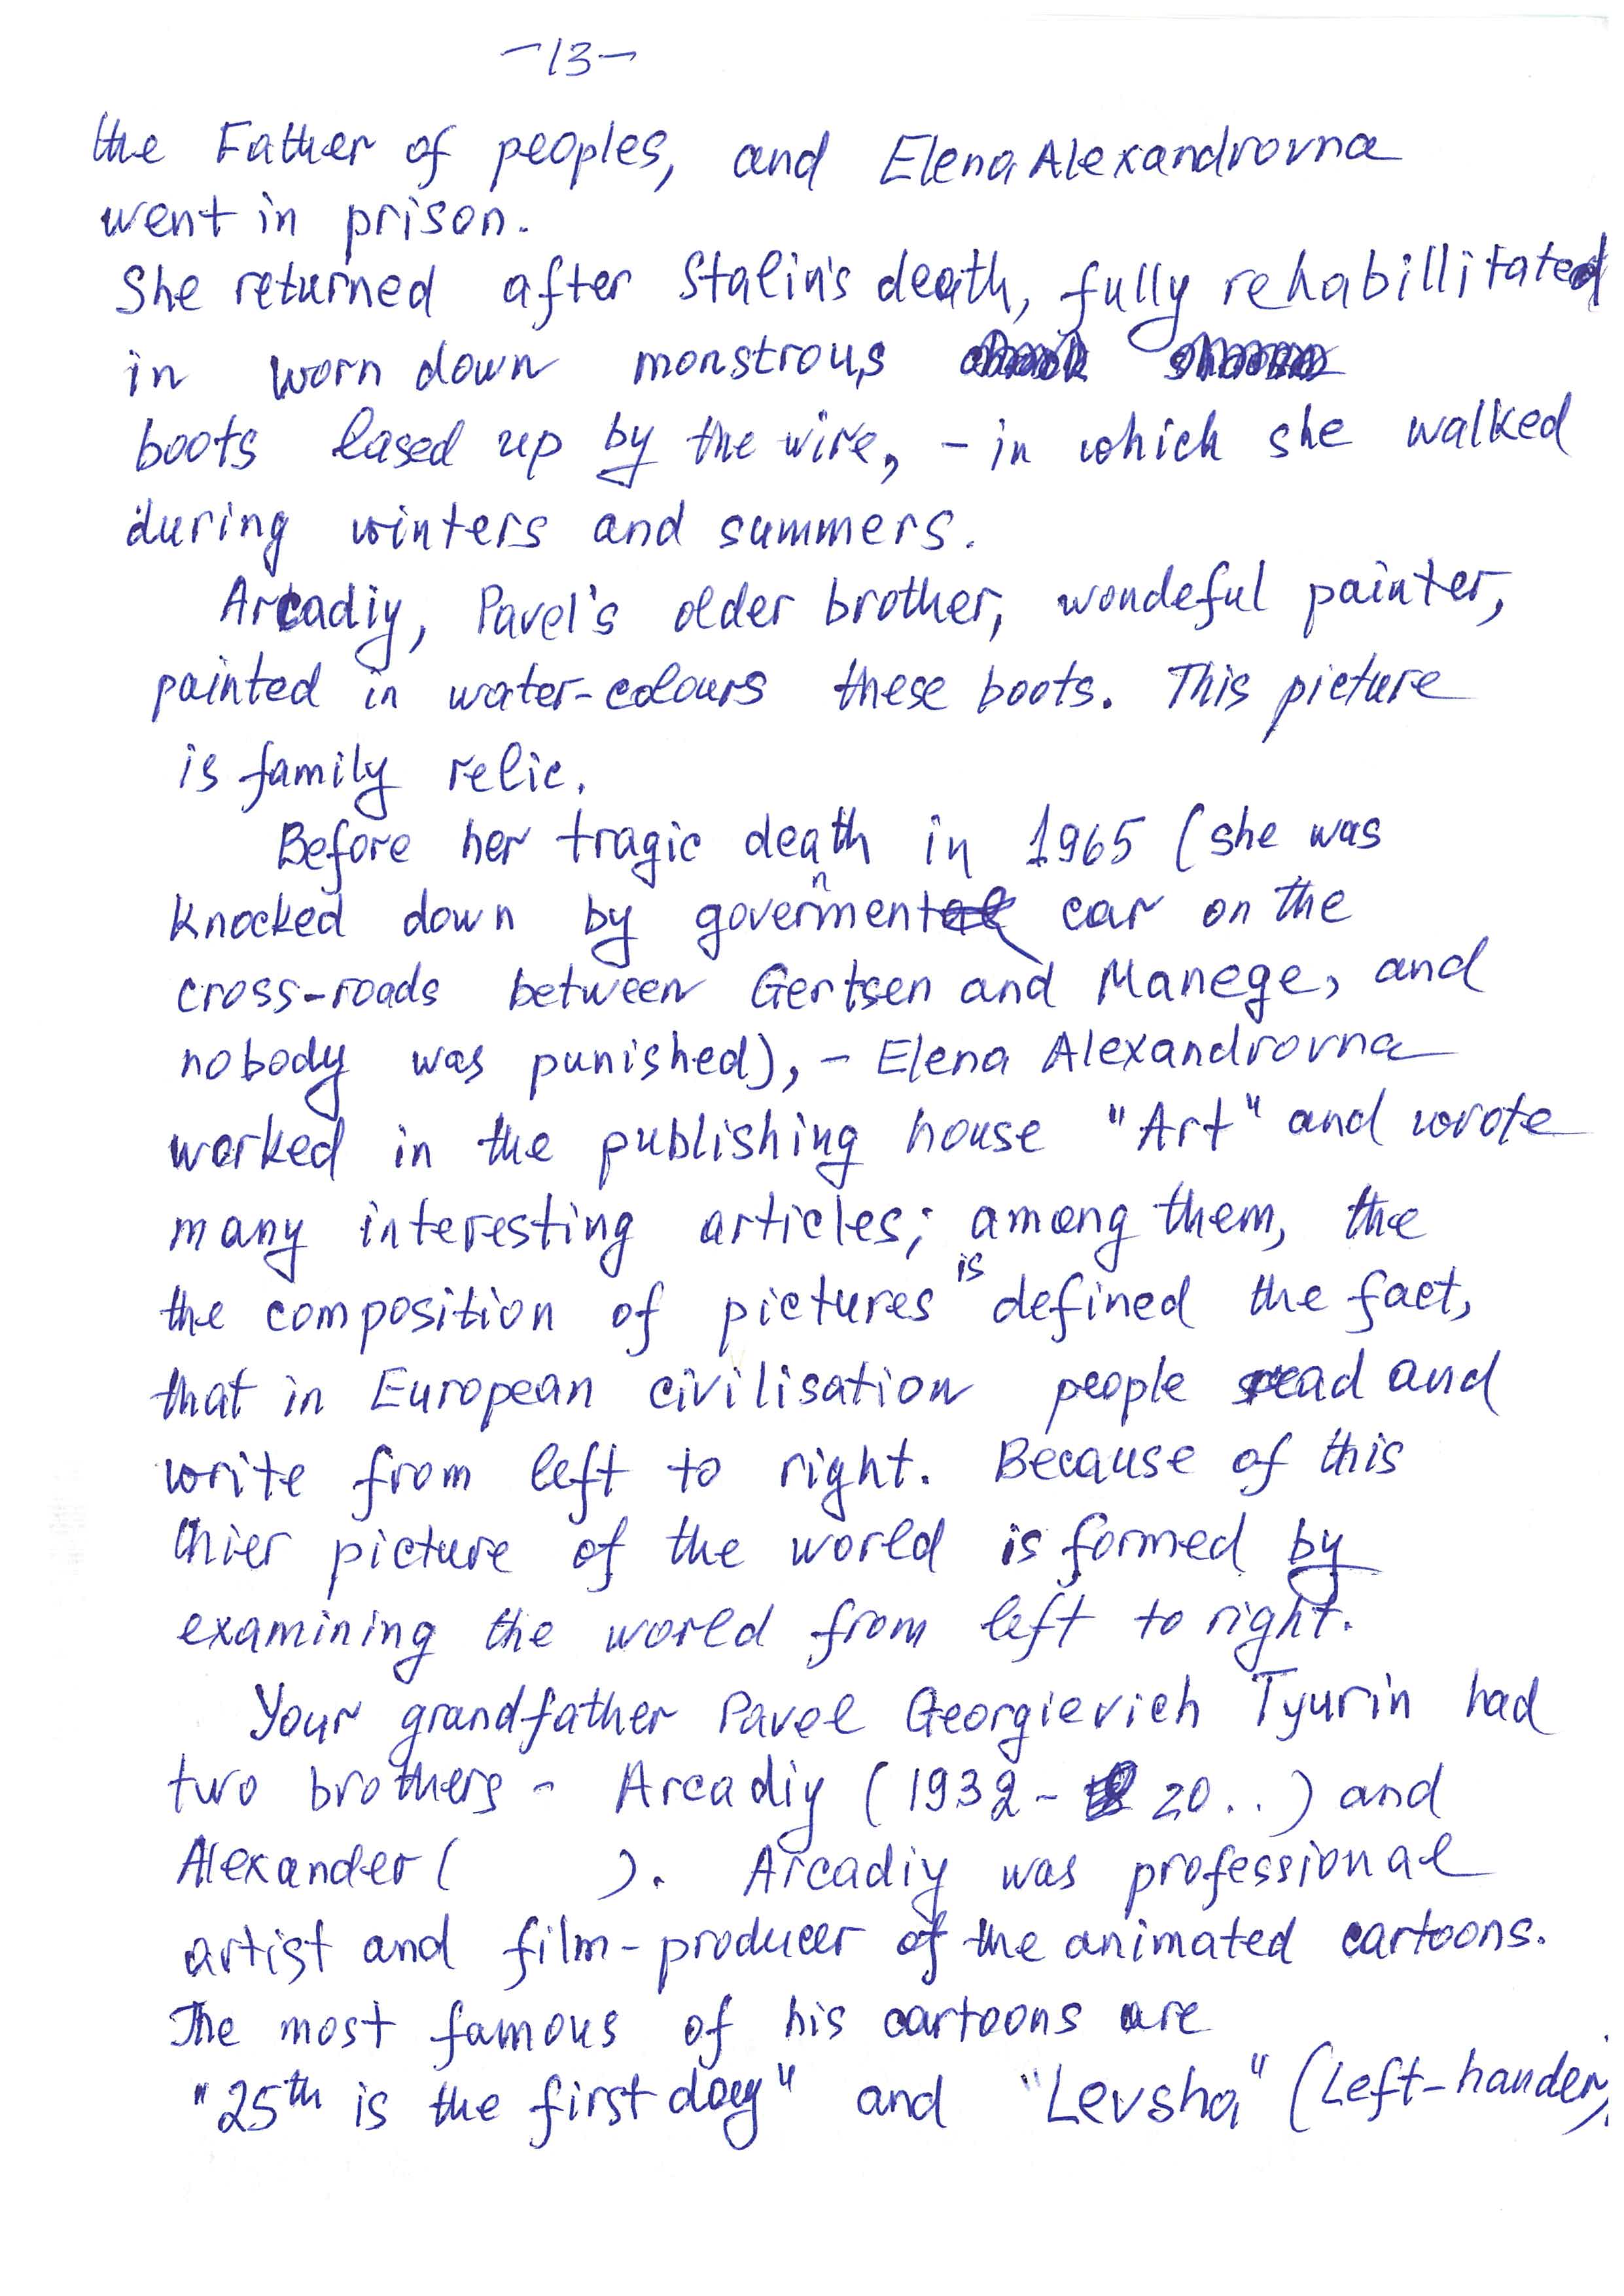 -13-
the Father of peoples, and Elena Alexandrovna
went in prison.
She returned after Stalin's death, fully rehabillitated
in worn down monstrous
boots lased up by the wire, - in which she walked
during winters and summers.
Arcadiy, Pavel's older brother, wondeful painter,
painted in water-colours these boots. This picture
is family relic.
Before her tragic death in 1965 (she was
knocked down by government car on the
cross-roads between Gertsen and Manege, and
nobody was punished), - Elena Alexandrovna
worked in the publishing house "Art" and wrote
many interesting articles; among them, the
the composition of pictures is defined the fact,
that in European civilisation people read and
write from left to right. Because of this
thier picture of the world is formed by
examining the world from left to right.
Your grandfather Pavel Georgievich Tyurin had
two brothers - Arcadiy (1932 - 20..) and
Alexander ( ). Arcadiy was professional
artist and film-producer of the animated cartoons.
The most famous of his cartoons are
"25th is the first day" and "Levsha" (Left-hander)